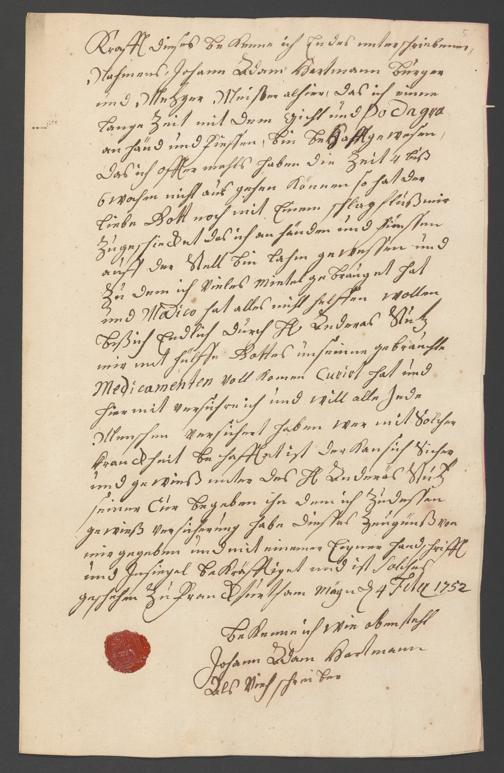 Krafft dieses bekenne ich Endes unterschriebener,
Nahmens Johann Adam Hartmann bürger
und Metzger Meister alhier, das ich eine
lange Zeit mit dem Gicht und Podagra
an händ und Fiessen, bin behafft gewesen,
das ich offtermahls haben die Zeit 4 biß
6 wochen nicht aus gehen können so hat der
liebe Gott noch mit Einem schlag fluß mir
Zugeschicket das ich an handen und Fiessen
auff der Stell bin lahm gewessen und
Zu dem ich vieles mittel gebrauget hat
und Medico hat alles nicht helffen wollen
bißich Endlich durch H Anderas Stutz
mir mit hülffe Gottes und seine gebrauchte
Medicamenten voll komen Curirt hat und
hier mit versichre ich und will alle Jede
Menschen versichert haben wer mit Solcher
kranckheit behafftet ist der kan sich Sicher
und gewieß unter des H Anderas Stutz
seiner Cur begeben ihn dem ich Zu dessen
gewieß versicherung habe diesses Zeugnuß von
mir gegeben und mit meiner Eigner handschrifft
und Insiegel bekräfftiget und ist Solches
geschehen Zu Franckfurth am Mayn d 4 1752
bekenne ich wie oben steht
Johann Adam Hartmann
Als Vieh schreiber